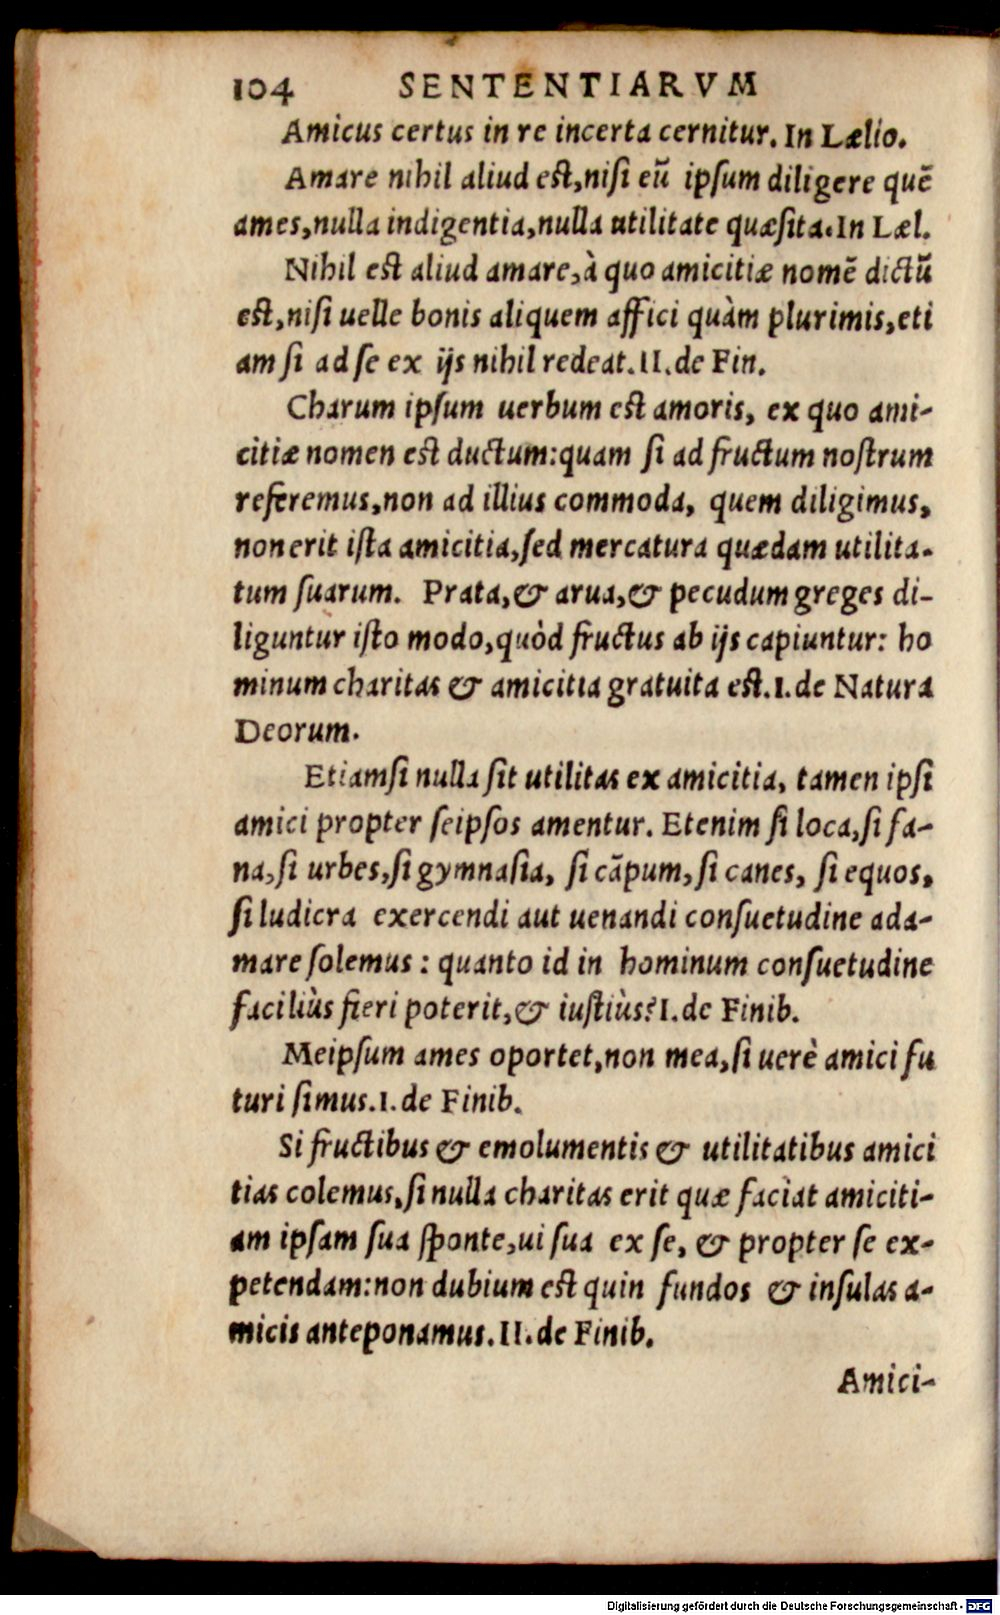 104 SENTENTIARVM
Amicus certus in re incerta cernitur. In Lælio.
Amare nihil aliud est, nisi eũ ipsum diligere quẽ
ames, nulla indigentia, nulla utilitate quæsita. In Læl.
Nihil est aliud amare, à quo amicitiæ nomẽ dictũ
est, nisi uelle bonis aliquem affici quàm plurimis, eti
am si ad se ex ijs nihil redeat. II. de Fin.
Charum ipsum uerbum est amoris, ex quo ami-
citiæ nomen est ductum: quam si ad fructum nostrum
referemus, non ad illius commoda, quem diligimus,
non erit ista amicitia, sed mercatura quædam utilita-
tum suarum. Prata, & arua, & pecudum greges di-
liguntur isto modo, quòd fructus ab ijs capiuntur: ho
minum charitas & amicitia gratuita est. I. de Natura
Deorum.
Etiamsi nulla sit utilitas ex amicitia, tamen ipsi
amici propter seipsos amentur. Etenim si loca, si fa-
na, si urbes, si gymnasia, si cãpum, si canes, si equos,
si ludicra exercendi aut uenandi consuetudine ada-
mare solemus: quanto id in hominum consuetudine
faciliùs fieri poterit, & iustiùs? I. de Finib.
Meipsum ames oportet, non mea, si uerè amici fu
turi simus. I. de Finib.
Si fructibus & emolumentis & utilitatibus amici
tias colemus, si nulla charitas erit quæ faciat amiciti-
am ipsam sua sponte, ui sua ex se, & propter se ex-
petendam: non dubium est quin fundos & insulas a-
micis anteponamus. II. de Finib.
Amici-
Digitalisierung gefördert durch die Deutsche Forschungsgemeinschaft - DFG